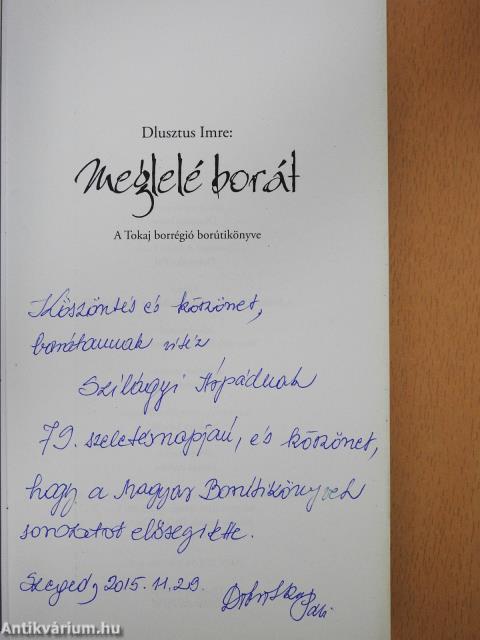 Dlusztus Imre:
Meglelé borát
A Tokaj borrégió borútikönyve
Köszöntés és köszönet,
barátomnak vitéz
Szilágyi Árpádnak
79. születésnapján, és köszönet,
hogy a Magyar Borútikönyvek
sorozatot elősegítette.
Szeged, 2015. 11. 29.
Antikvárium.hu
Antikvárium.hu